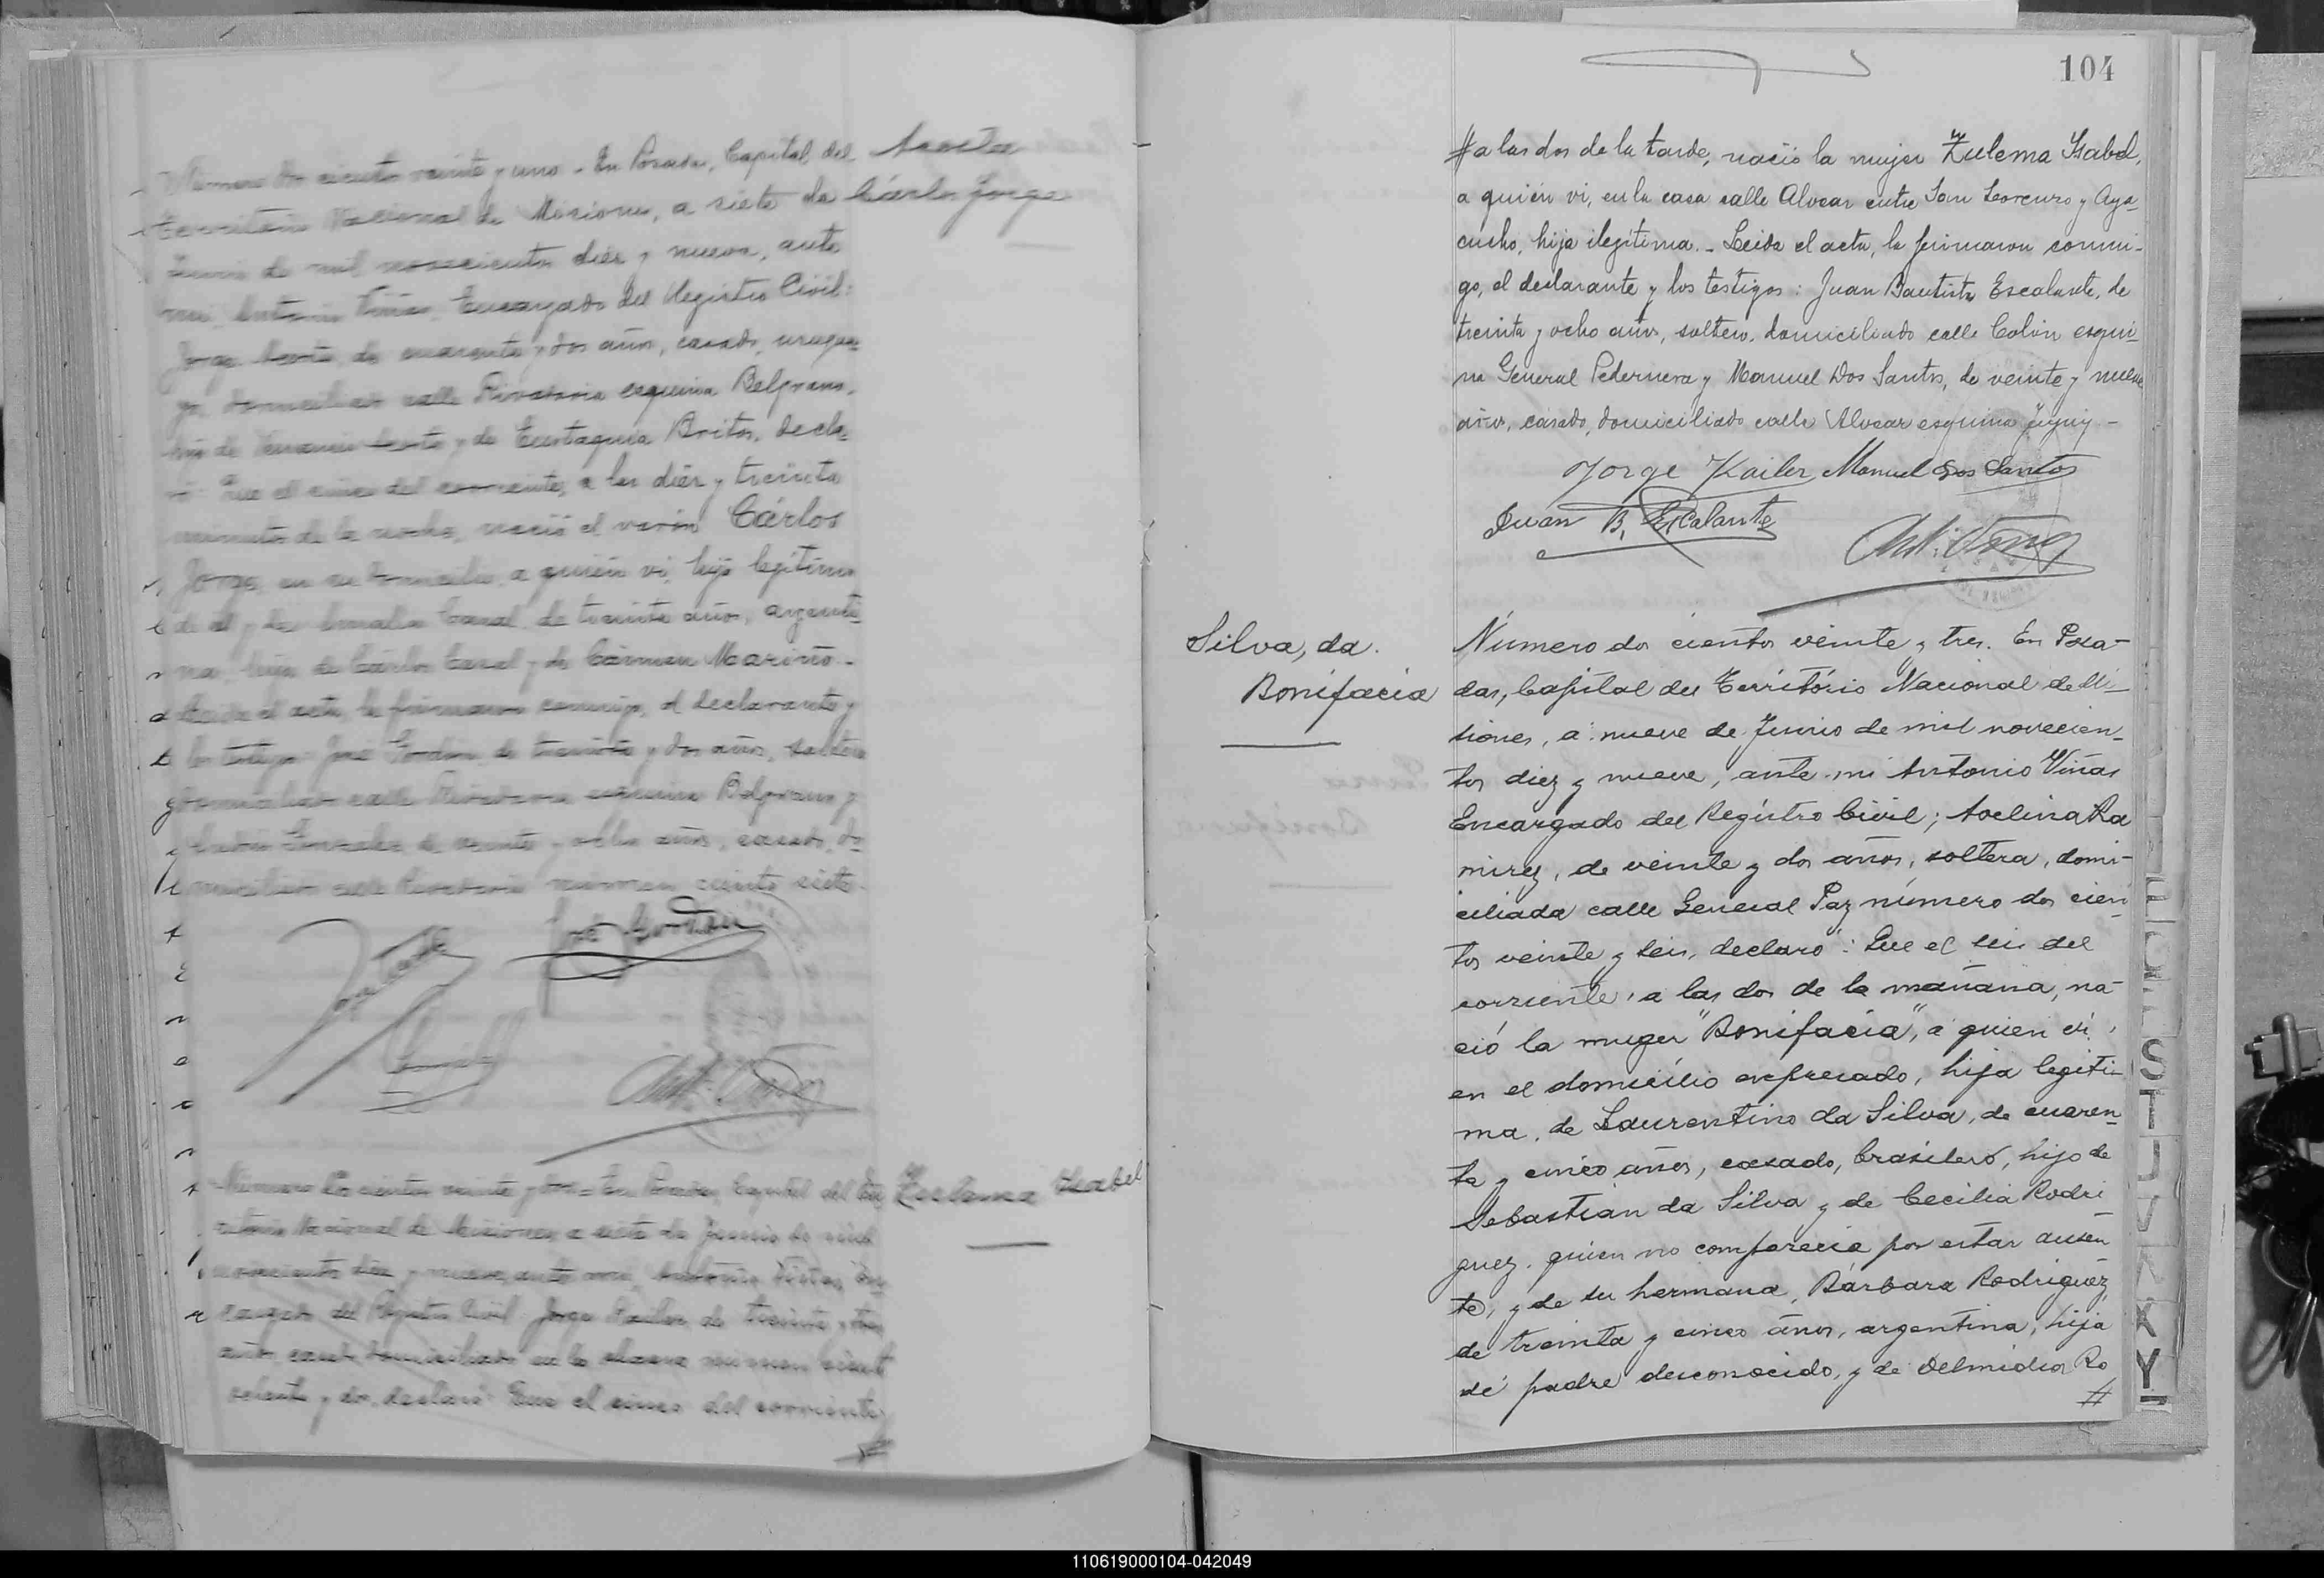 Número dos cientos veinte y uno - En Posadas, Capital del
Acosta
Territorio Nacional de Misiones, a siete de
Cárlos Jorge
Junio de mil novecientos diez y nueve, ante
mi, Antonio Viñas, Encargado del Registro Civil:
Jorge Acosta, de cuarenta y dos años, casado, urugua-
yo, domiciliado calle Rivadavia esquina Belgrano,
hijo de Acosta y de Eustaquia Britos, decla-
ró: Que el cinco del corriente, a las diez y treinta
minutos de la noche, nació el varón Cárlos
Jorge, en su domicilio, a quién vi, hijo legítimo
de él y de Canal, de treinta años, argenti-
na, hija de Cárlos Canal y de Cármen Mariño.-
Leida el acta, la firmaron conmigo, el declarante y
los testigos: José Gordon, de treinta y dos años, soltero
domiciliado calle Rivadavia esquina Belgrano y
Gonzalez de veinte y ocho años, casado, do-
miciliado calle Rivadavia número ciento siete.
José Gordon
Ant. Viñas
Número dos cientos veinte y dos - En Posadas, Capital del Ter
Zulema Isabel
ritorio Nacional de Misiones, a siete de Junio de mil
novecientos diez y nueve, ante mi, Antonio Viñas, En-
cargado del Registro Civil: Jorge Kailer, de treinta y tres
años, casado, domiciliado en la chacra número ciento
setenta y dos, declaró: Que el cinco del corriente,
#
104
# a las dos de la tarde, nació la mujer Zulema Ysabel,
a quién vi, en la casa calle Alvear entre San Lorenzo y Aya-
cucho, hija ilegítima. - Leida el acta, la firmaron conmi-
go, el declarante y los testigos: Juan Bautista Escalante, de
treinta y ocho años, soltero, domiciliado calle Colón esqui-
na General Pedernera y Manuel Dos Santos, de veinte y nueve
años, casado, domiciliado calle Alvear esquina Jujuy -
Jorge Kailer Manuel Dos Santos
Juan B. Escalante
Ant. Viñas
Silva, da.
Bonifacia
Número dos cientos veinte y tres. En Posa-
das, Capital del Território Nacional de Mi-
siones, á nueve de Junio de mil novecien-
tos diez y nueve, ante mi Antonio Viñas
Encargado del Registro Civil; Avelina Ra
mirez, de veinte y dos años, soltera, domi-
ciliada calle General Paz número dos cien-
tos veinte y seis, declaró: Que el seis del
corriente, a las dos de la mañana, na-
ció la muger "Bonifacia", á quien ví,
en el domicílio expresado, hija legiti-
ma, de Laurentino da Silva, de cuaren-
ta y cinco años, casado, brasilero, hijo de
Sebastian da Silva y de Cecilia Rodri
guez, quien no comparecia por estar ausen
te, y de su hermana, Bárbara Rodriguez,
de treinta y cinco años, argentina, hija
de padre desconocido, y de Delmidia Ro
#
S
T
U
V
X
Y
110619000104-042049